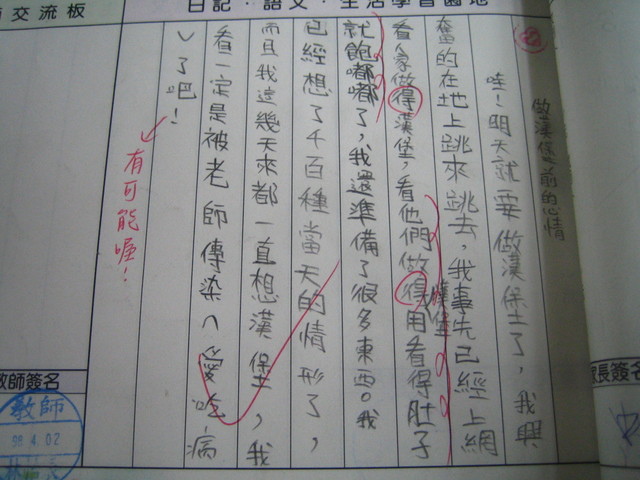 交流板
日記．語文．生活學習園地
做漢堡前的心情
哇！明天就要做漢堡了，我興
奮的在地上跳來跳去，我事先已經上網
看人家做得漢堡，看他們做得漢堡用看得肚子
就飽嘟嘟了，我還準備了很多東西。我
已經想了千百種當天的情形了，
而且我這幾天來都一直想漢堡，我
看一定是被老師傳染〈愛吃病
〉了吧！
有可能喔！
長簽名
教師簽名
教師
99.4.02